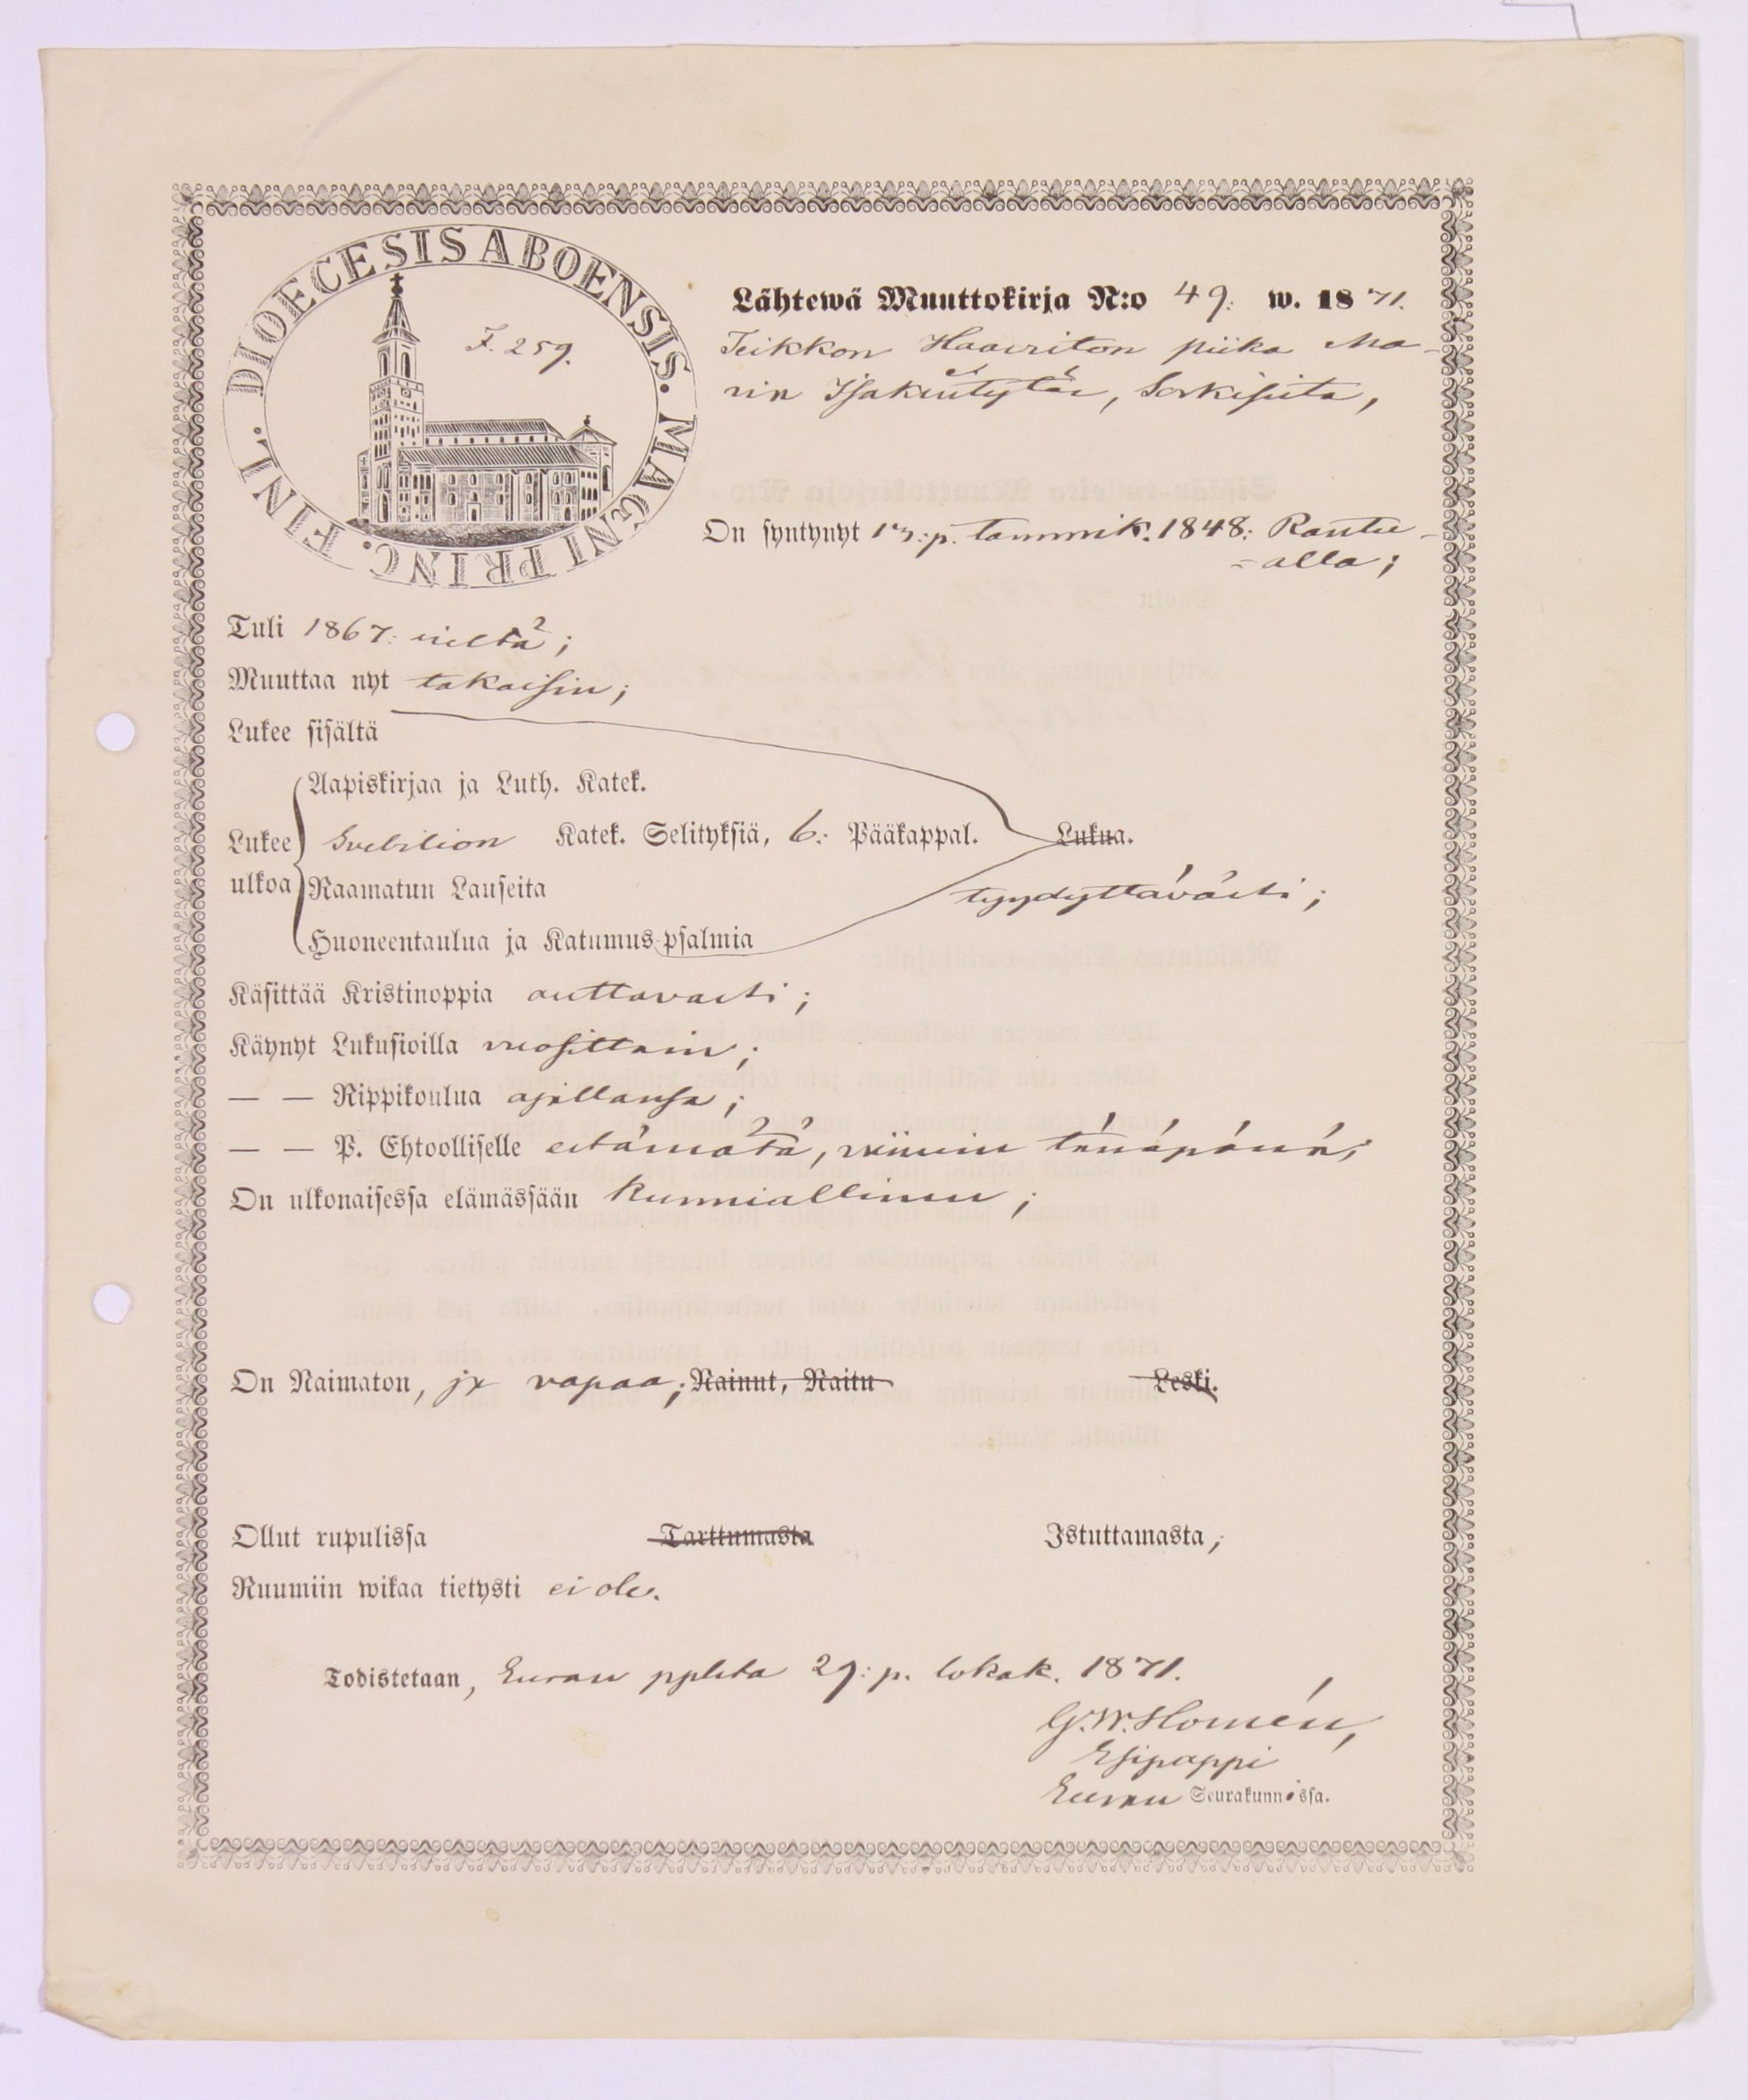 DIOECESIS ABOENSIS. MAGNI PRINC. FINL.
F. 259.
Lähtewä Muuttokirja N:o 49: w. 1871.
Teikkon Haaviston piika Ma-
rin Isakintytär, Sorkisista,
On syntynyt 13:p. tammik. 1848: Rantu-
-alla;
Tuli 1867: sieltä;
Muuttaa nyt takaisin;
Lukee sisältä
Aapiskirjaa ja Luth. Katek.
Lukee Svebilion Katek. Selityksiä, 6: Pääkappal. Lukua.
ulkoa Raamatun Lauseita tyydyttävästi;
Huoneentaulua ja Katumus-psalmia
Käsittää Kristinoppia auttavasti;
Käynyt Lukusioilla vuosittain;
— — Rippikoulua ajallansa;
— — P. Ehtoolliselle estämätä, viimein tänäpänä;
On ulkonaisessa elämässään kunniallinen;
On Naimaton, ja vapaa; Nainut, Naitu Leski.
Ollut rupulissa Tarttumasta Istuttamasta,
Ruumiin wikaa tietysti ei ole.
Todistetaan, Euran pplasta 29:p. lokak. 1871.
G.W. Homén,
Esipappi
Euran Seurakunnassa.